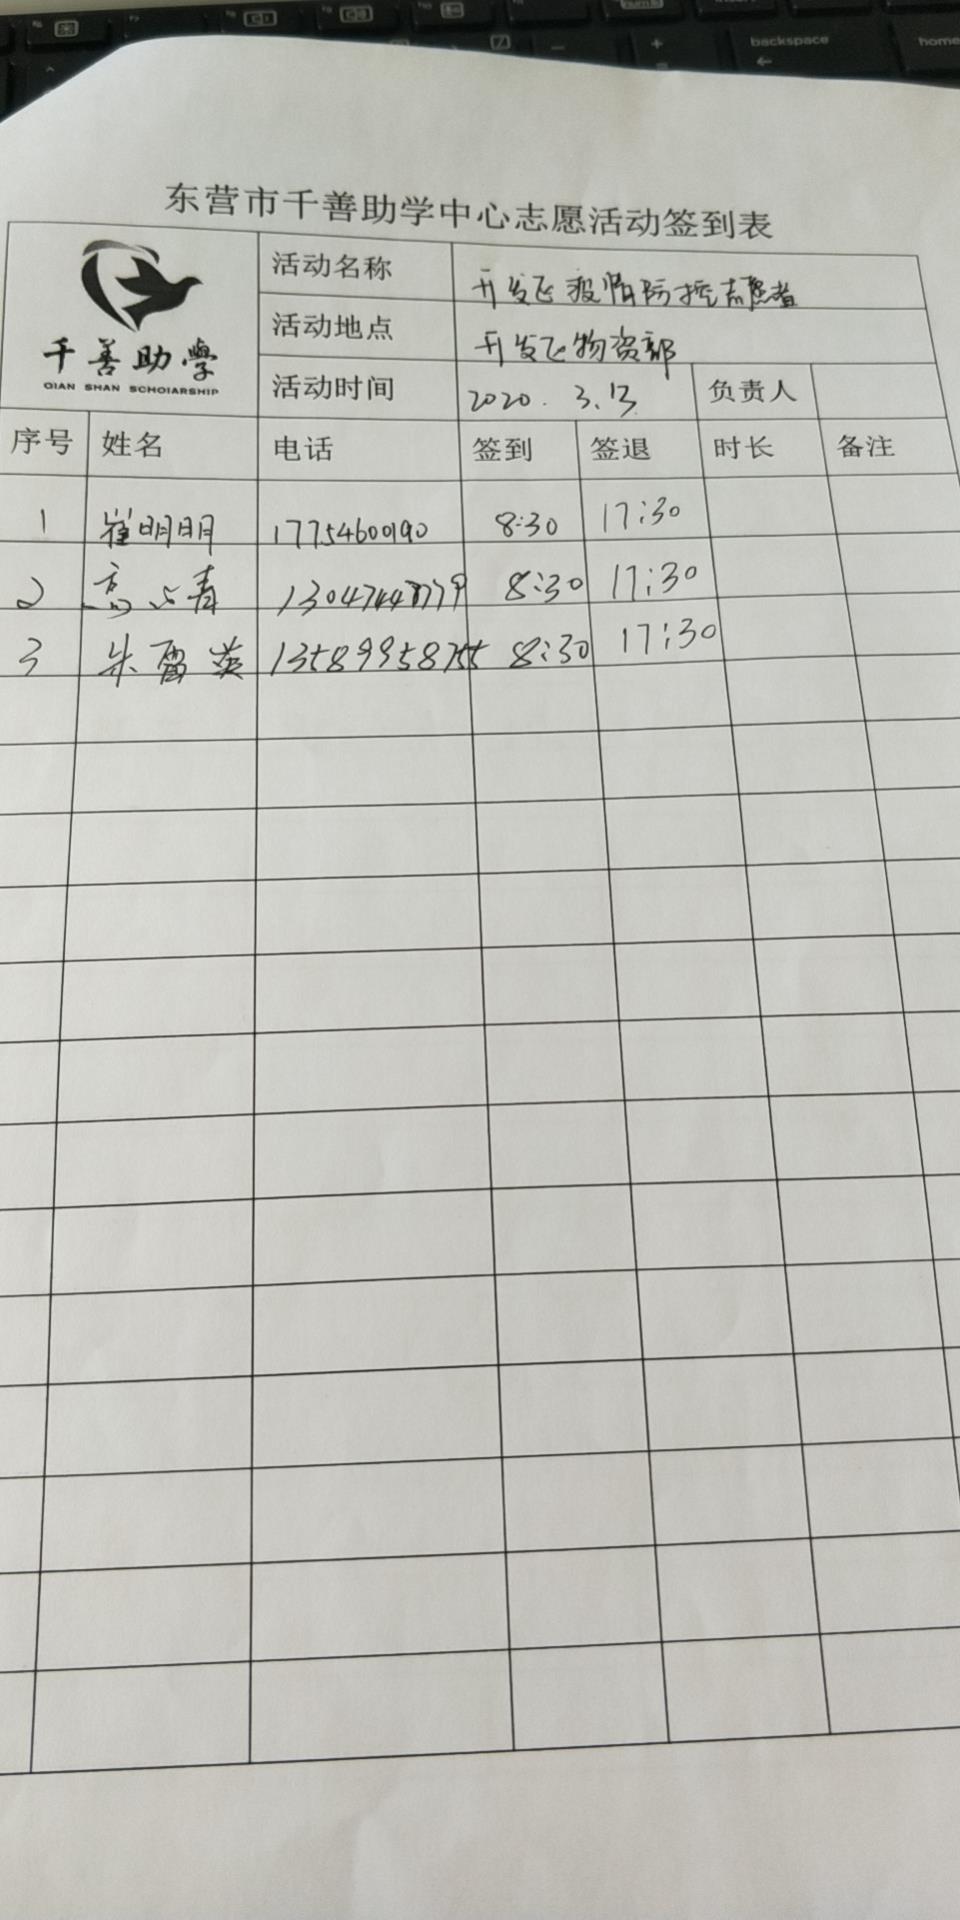 backspace
home
东营市千善助学中心志愿活动签到表
千善助學
QIAN SHAN SCHOIARSHIP
活动名称 开发区疫情防控志愿者
活动地点 开发区物资部
活动时间 2020.3.13 负责人
序号 姓名 电话 签到 签退 时长 备注
1 崔明明 17754600190 8:30 17:30
2 高 青 8:30 17:30
3 朱 英 13589958755 8:30 17:30